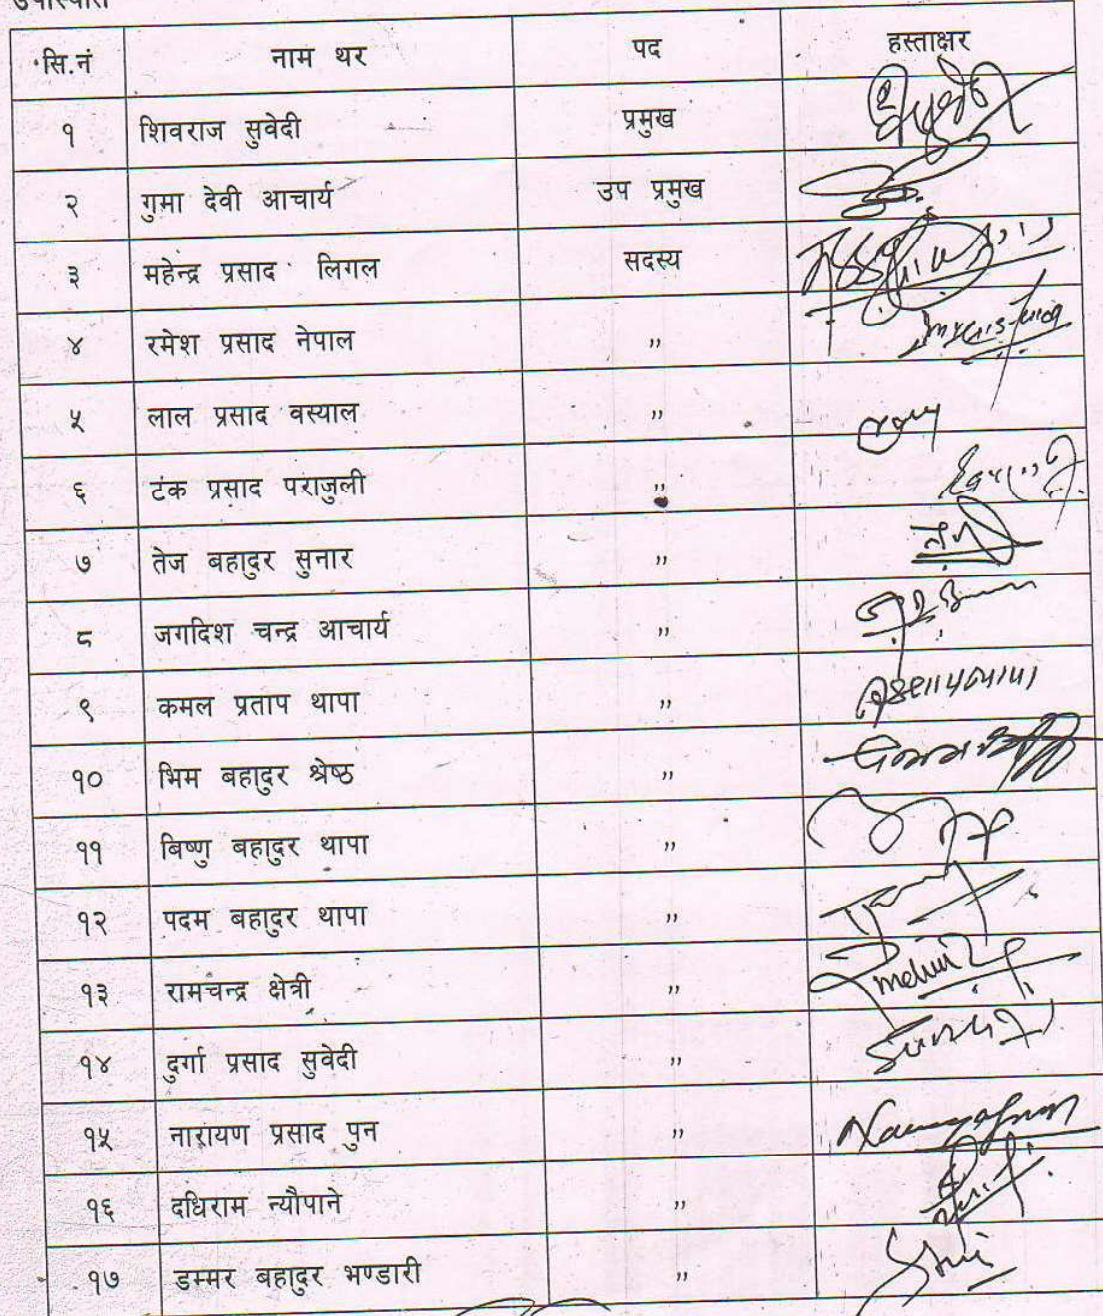 उपस्थिति
सि.नं नाम थर पद हस्ताक्षर
१ शिवराज सुवेदी प्रमुख
२ गुमा देवी आचार्य उप प्रमुख
३ महेन्द्र प्रसाद लिगल सदस्य
४ रमेश प्रसाद नेपाल ,,
५ लाल प्रसाद वस्याल ,,
६ टंक प्रसाद पराजुली ,,
७ तेज बहादुर सुनार ,,
८ जगदिश चन्द्र आचार्य ,,
९ कमल प्रताप थापा ,,
१० भिम बहादुर श्रेष्ठ ,,
११ बिष्णु बहादुर थापा ,,
१२ पदम बहादुर थापा ,,
१३ रामचन्द्र क्षेत्री ,,
१४ दुर्गा प्रसाद सुवेदी ,,
१५ नारायण प्रसाद पुन ,,
१६ दधिराम न्यौपाने ,,
१७ डम्मर बहादुर भण्डारी ,,